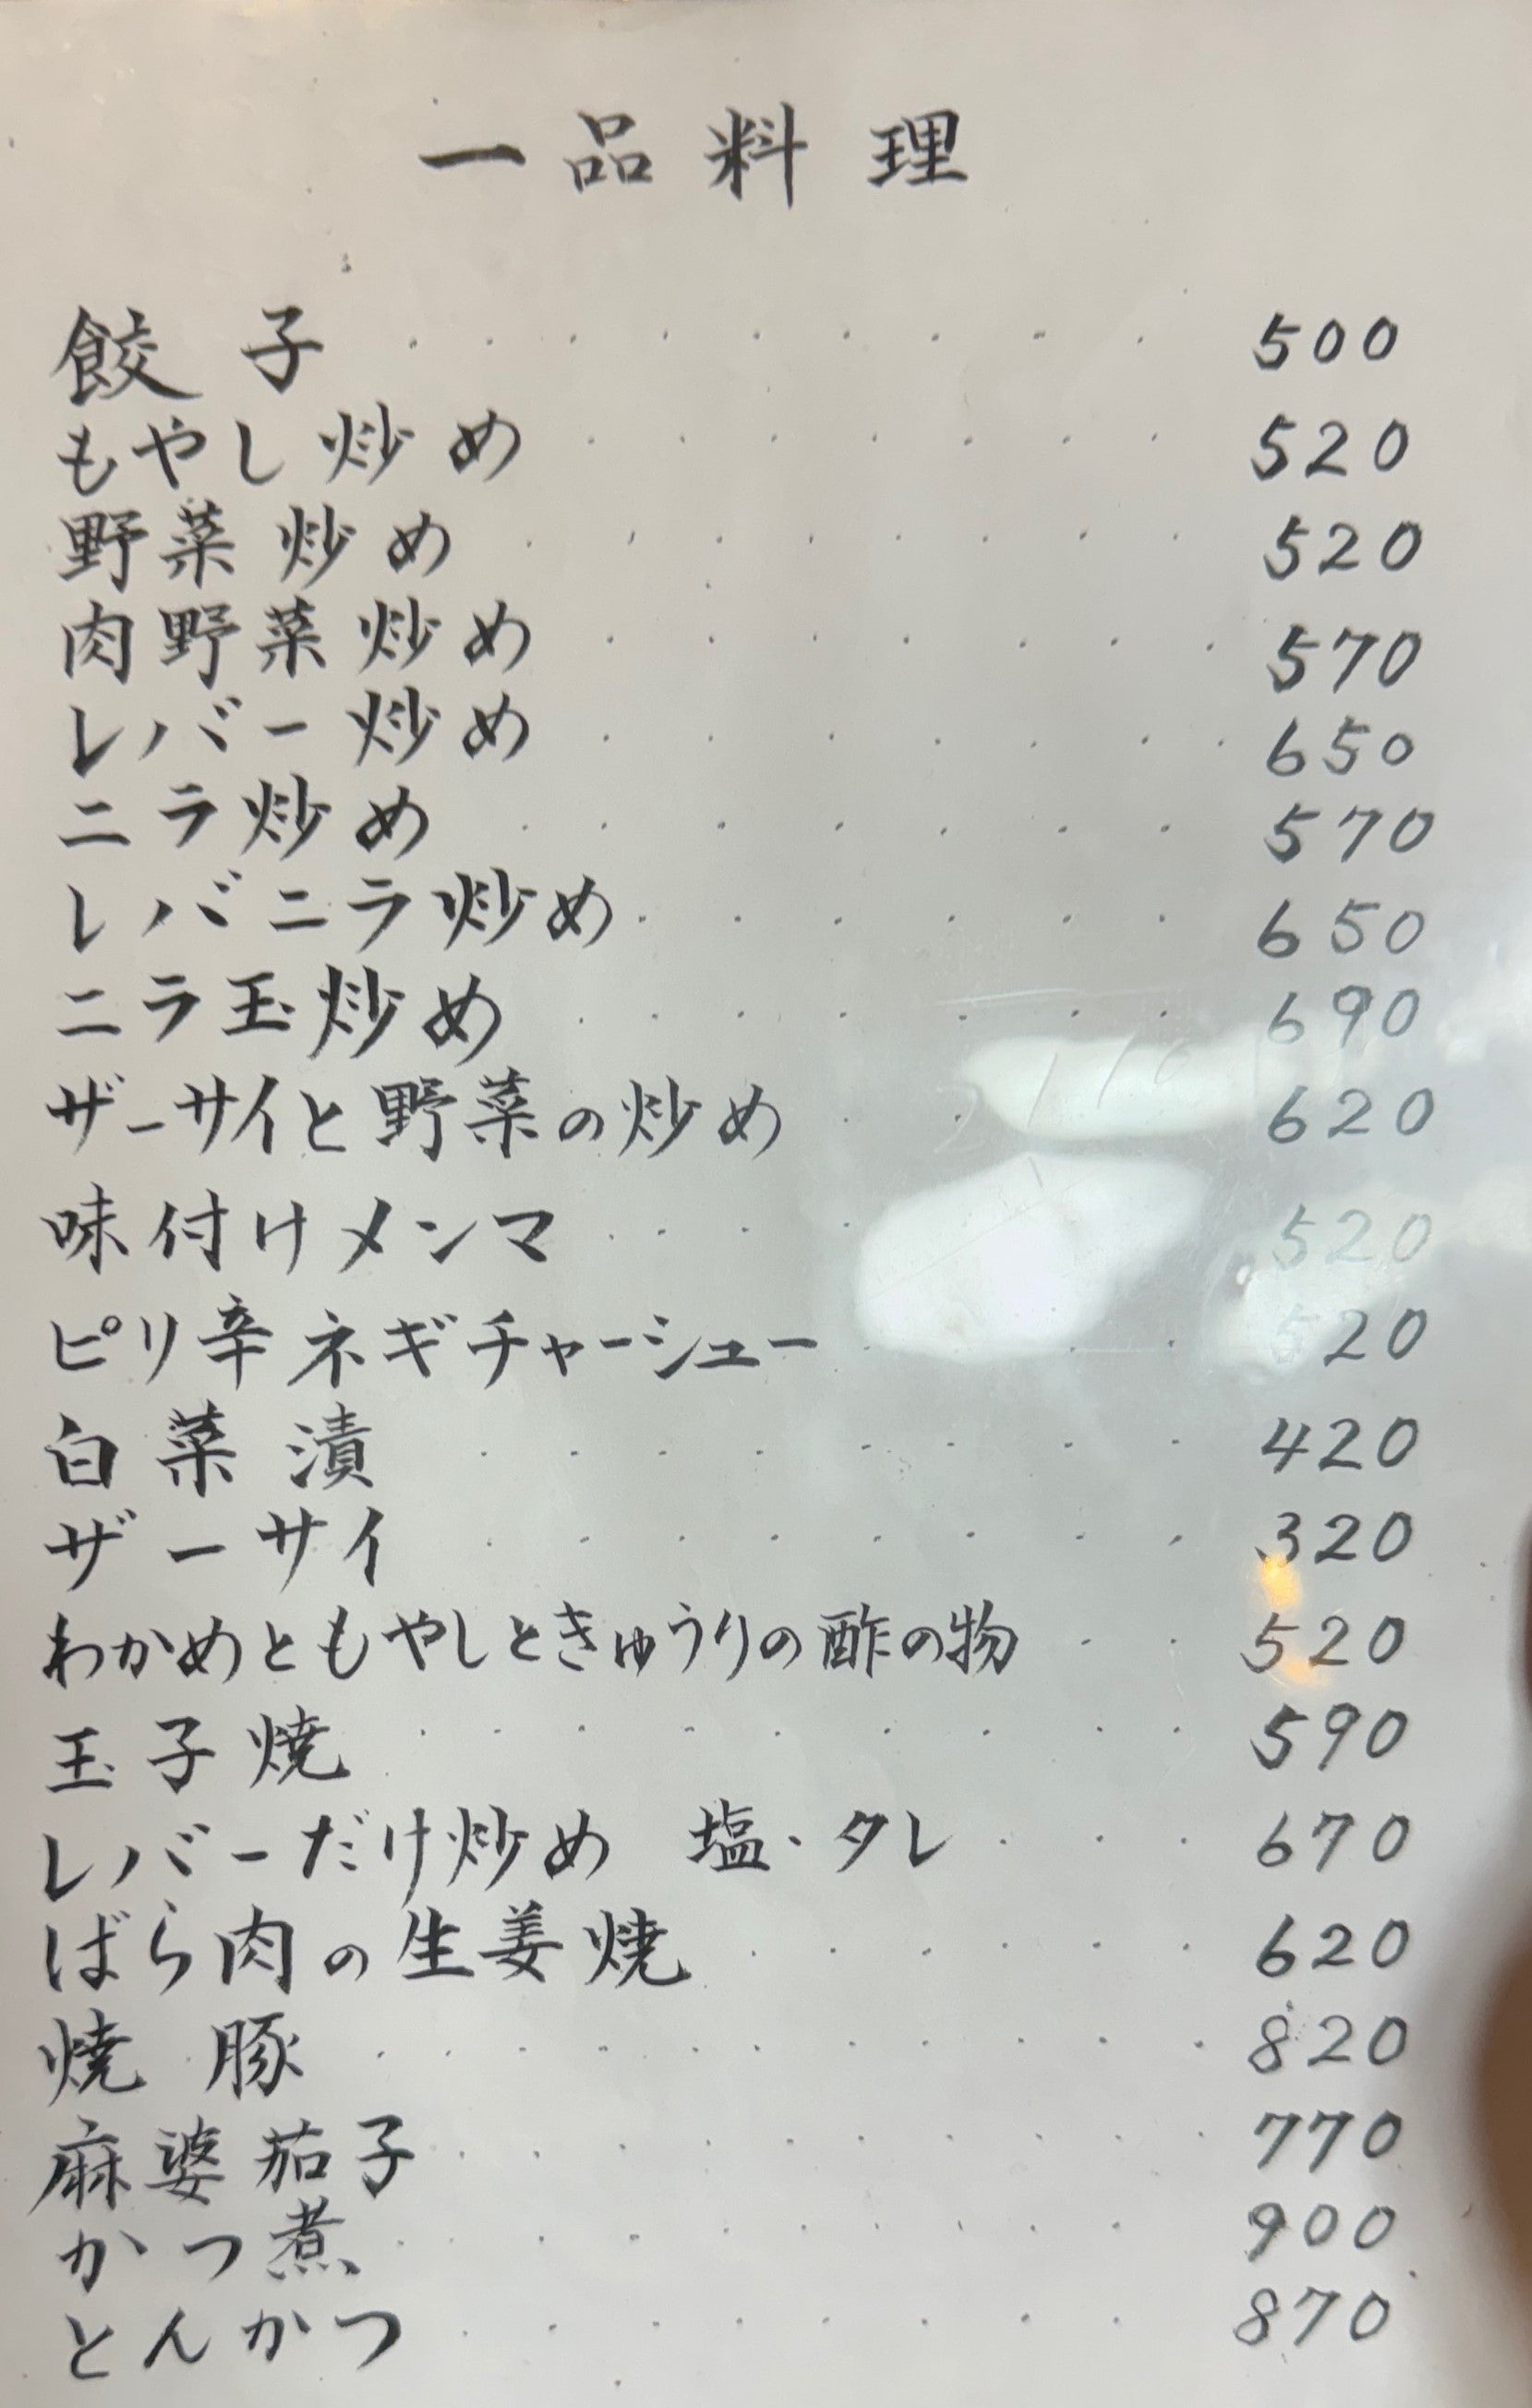 一品料理
餃子 500
もやし炒め 520
野菜炒め 520
肉野菜炒め 570
レバー炒め 650
ニラ炒め 570
レバニラ炒め 650
ニラ玉炒め 690
ザーサイと野菜の炒め 620
味付けメンマ 520
ピリ辛ネギチャーシュー 520
白菜漬 420
ザーサイ 320
わかめともやしときゅうりの酢の物 520
玉子焼 590
レバーだけ炒め 塩・タレ 670
ばら肉の生姜焼 620
焼豚 820
麻婆茄子 770
かつ煮 900
とんかつ 870